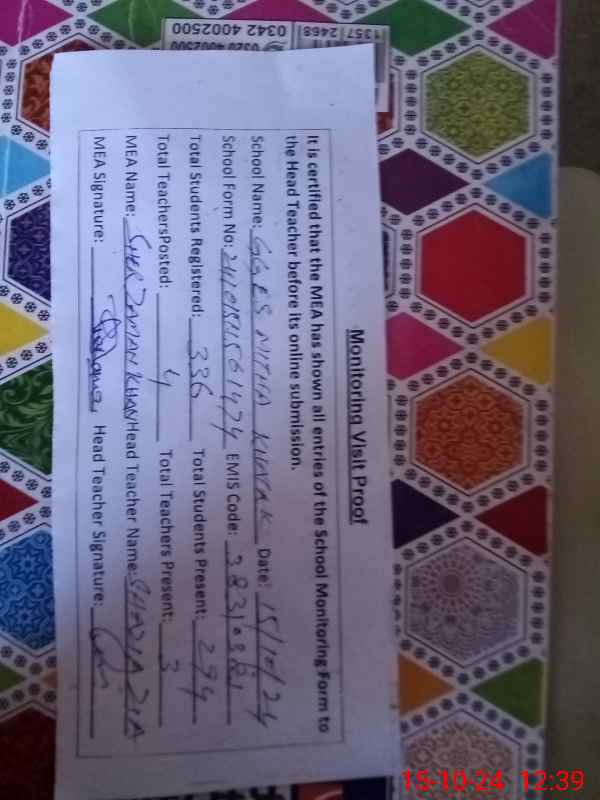 Monitoring Visit Proof
It is certified that the MEA has shown all entries of the School Monitoring Form to
the Head Teacher before its online submission.
School Name: GGPS MITHA KHTAK Date: 15/10/24
School Form No: EMIS Code:
Total Students Registered: 336 Total Students Present: 294
Total TeachersPosted: 4 Total Teachers Present: 3
MEA Name: SHER ZAMAN KHAN Head Teacher Name: SHAZIA ZIA
MEA Signature: Head Teacher Signature:
1357 2468
0342 4002500
0320 4002500
15-10-24 12:39